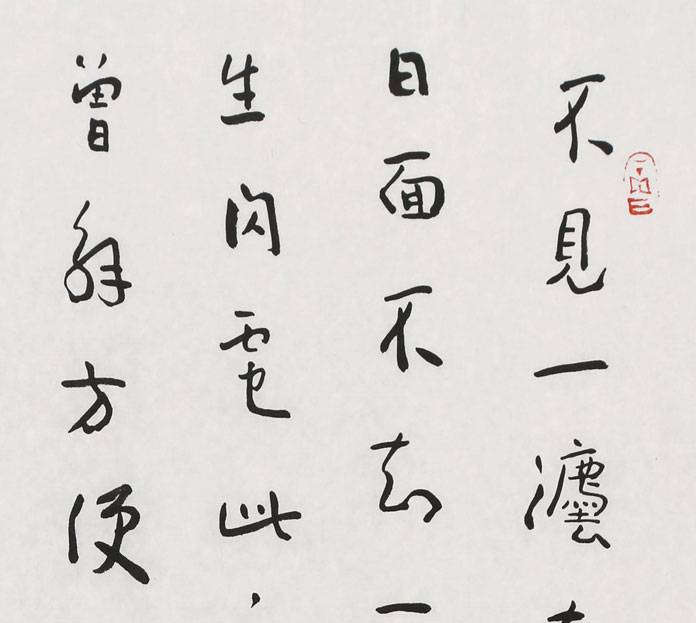 不見一灋
日面不知一
生閃電此
曾解方便